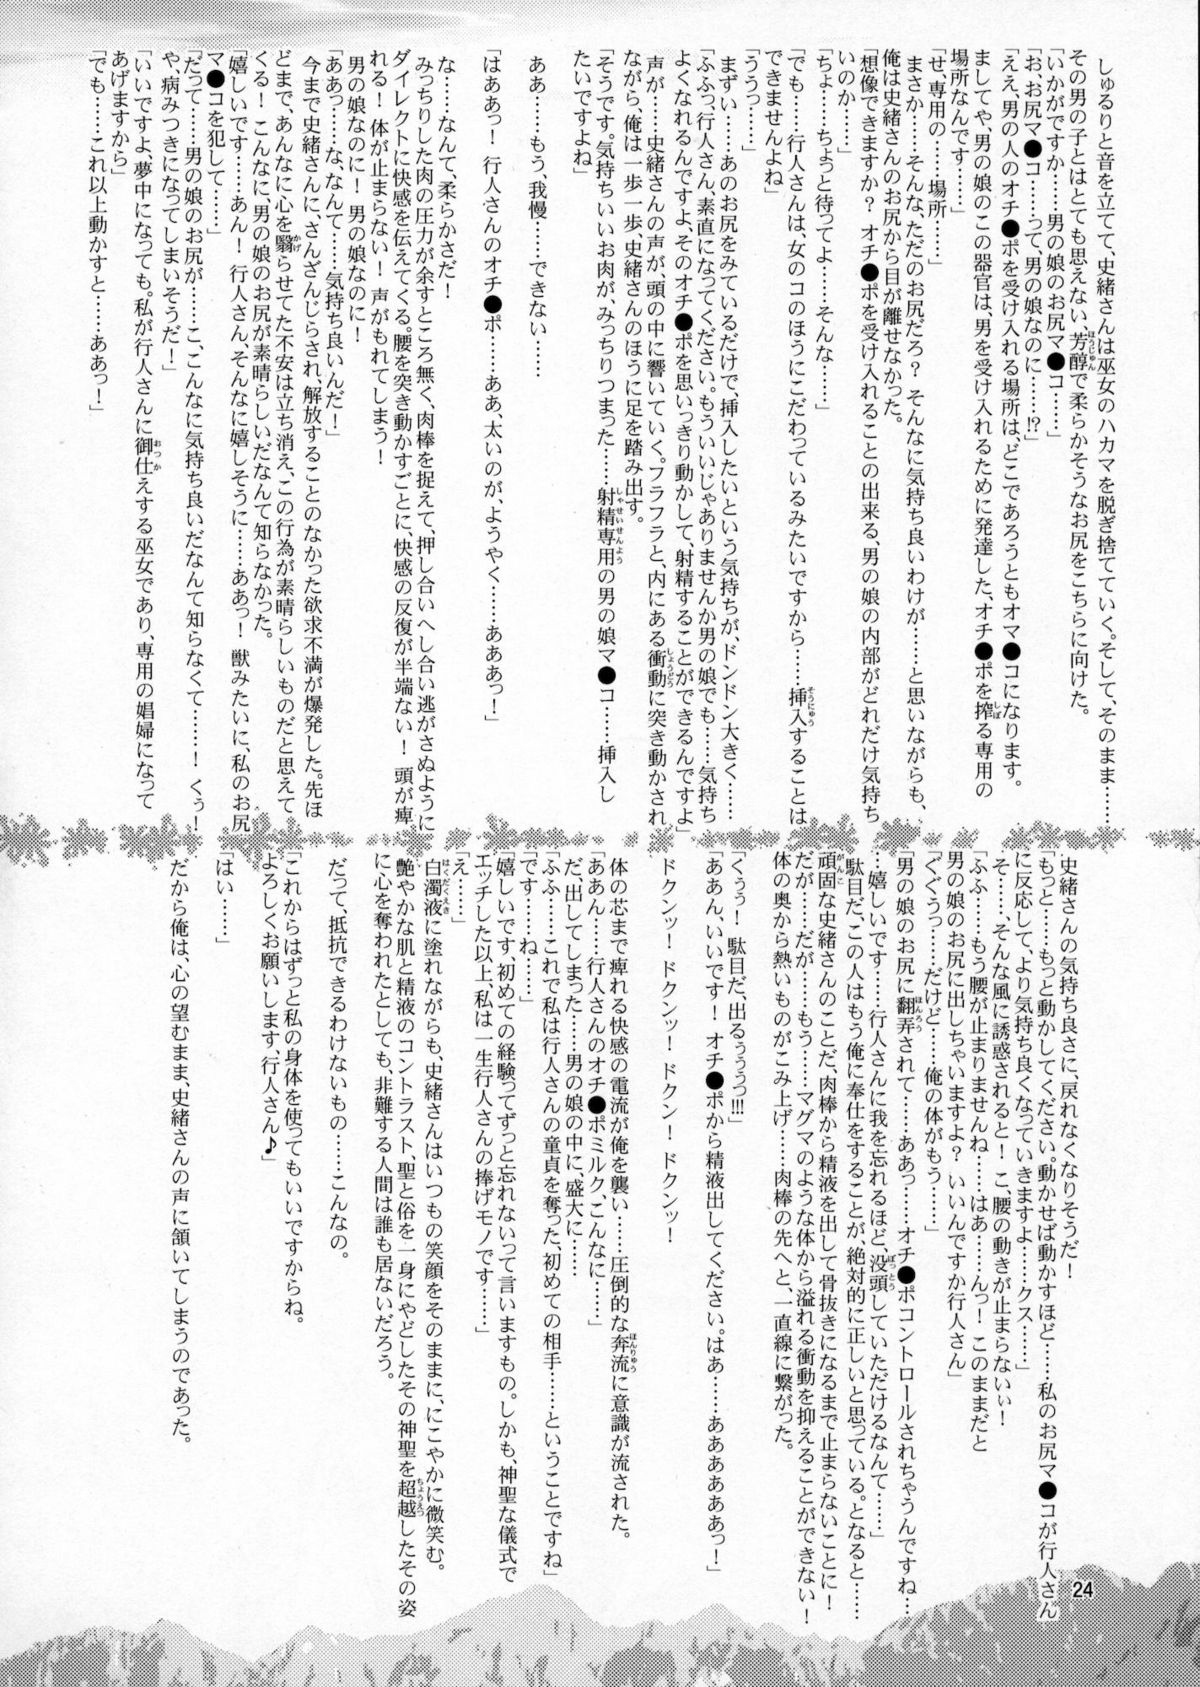 しゅるりと音を立てて、史緒さんは巫女のハカマを脱ぎ捨てていく。そして、そのまま……
その男の子とはとても思えない、芳醇で柔らかそうなお尻をこちらに向けた。
「いかがですか……男の娘のお尻マ●コ……」
「お、お尻マ●コ……って、男の娘なのに……!?」
「ええ、男の人のオチ●ポを受け入れる場所は、どこであろうともオマ●コになります。
ましてや、男の娘のこの器官は、男を受け入れるために発達した、オチ●ポを搾る専用の
場所なんです……」
「せ、専用の……場所……」
まさか……そんな、ただのお尻だろ？ そんなに気持ち良いわけが……と思いながらも、
俺は史緒さんのお尻から目が離せなかった。
「想像できますか？ オチ●ポを受け入れることの出来る、男の娘の内部がどれだけ気持ち
いいのか……」
「ちょ……ちょっと待ってよ……そんな……」
「でも……行人さんは、女のコのほうにこだわっているみたいですから……挿入することは
できませんよね」
「ううっ……」
まずい……あのお尻をみているだけで、挿入したいという気持ちが、ドンドン大きく……
「ふふっ、行人さん、素直になってください。もういいじゃありませんか男の娘でも……気持ち
よくなれるんですよ、そのオチ●ポを思いっきり動かして、射精することができるんですよ」
声が……史緒さんの声が、頭の中に響いていく。フラフラと、内にある衝動に突き動かされ
ながら、俺は一歩一歩、史緒さんのほうに足を踏み出す。
「そうです。気持ちいいお肉が、みっちりつまった……射精専用の男の娘マ●コ……挿入し
たいですよね」
ああ……もう、我慢……できない……
「はああっ！ 行人さんのオチ●ポ……ああ、太いのが、ようやく……あああっ！」
な……なんて、柔らかさだ！
みっちりした肉の圧力が余すところ無く、肉棒を捉えて、押し合いへし合い逃がさぬように
ダイレクトに快感を伝えてくる。腰を突き動かすごとに、快感の反復が半端ない！ 頭が痺
れる！ 体が止まらない！ 声がもれてしまう！
男の娘なのに！ 男の娘なのに！
「ああっ……な、なんて……気持ち良いんだ！」
今まで史緒さんに、さんざんじらされ、解放することのなかった欲求不満が爆発した。先ほ
どまで、あんなに心を翳らせてた不安は立ち消え、この行為が素晴らしいものだと思えて
くる！ こんなに、男の娘のお尻が素晴らしいだなんて知らなかった。
「嬉しいです……あん！ 行人さん、そんなに嬉しそうに……ああっ！ 獣みたいに、私のお尻
マ●コを犯して……」
「だって……男の娘のお尻が……こ、こんなに気持ち良いだなんて知らなくて……！ くぅ！
や、病みつきになってしまいそうだ！」
「いいですよ、夢中になっても。私が行人さんに御仕えする巫女であり、専用の娼婦になって
あげますから」
「でも……これ以上動かすと……ああっ！」
史緒さんの気持ち良さに、戻れなくなりそうだ！
「もっと……もっと動かしてください。動かせば動かすほど……私のお尻マ●コが行人さん
に反応して、より気持ち良くなっていきますよ……クス……」
そ……、そんな風に誘惑されると！ こ、腰の動きが止まらないぃ！
「ふふ……もう腰が止まりませんね……はあ……んっ！ このままだと
男の娘のお尻に出しちゃいますよ？ いいんですか行人さん」
「ぐぐうっ……だけど……俺の体がもう……」
「男の娘のお尻に翻弄されて……ああっ……オチ●ポコントロールされちゃうんですね…
…嬉しいです……行人さんに我を忘れるほど、没頭していただけるなんて……」
駄目だ、この人はもう俺に奉仕をすることが、絶対的に正しいと思っている。となると……
頑固な史緒さんのことだ、肉棒から精液を出して骨抜きになるまで止まらないことに！
だが……だが……もう……マグマのような体から溢れる衝動を抑えることができない！
体の奥から熱いものがこみ上げ……肉棒の先へと、一直線に繋がった。
「くうぅ！ 駄目だ、出るぅううっ!!!」
「ああん、いいです！ オチ●ポから精液出してください。はあ……ああああああっ！」
ドクンッ！ ドクンッ！ ドクン！ ドクンッ！
体の芯まで痺れる快感の電流が俺を襲い……圧倒的な奔流に意識が流された。
「ああん……行人さんのオチ●ポミルク、こんなに……」
だ、出してしまった……男の娘の中に、盛大に……
「ふふ……これで私は行人さんの童貞を奪った、初めての相手……ということですね」
「です……ね……」
「嬉しいです、初めての経験ってずっと忘れないって言いますもの。しかも、神聖な儀式で
エッチした以上、私は一生行人さんの捧げモノです……」
「え……」
白濁液に塗れながらも、史緒さんはいつもの笑顔をそのままに、にこやかに微笑む。
艶やかな肌と精液のコントラスト、聖と俗を一身にやどしたその神聖を超越したその姿
に心を奪われたとしても、非難する人間は誰も居ないだろう。
だって、抵抗できるわけないもの……こんなの。
「これからはずっと私の身体を使ってもいいですからね。
よろしくお願いします、行人さん♪」
「はい……」
だから俺は、心の望むまま、史緒さんの声に頷いてしまうのであった。
24